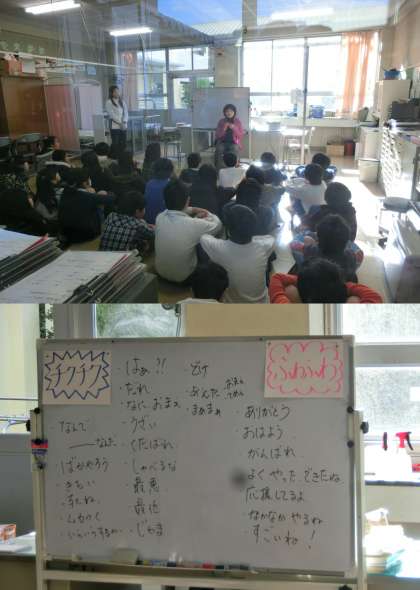 チクチク
・なんで
・ばかやろう
・きもい
・すたね
・ムカつく
・いらいらするわ
・はぁ?!
・だれ
・なにおまえ
・うざい
・くたばれ
・しゃべるな
・最悪
・最低
・じゃま
・どけ
・あんた
・まぁまぁ
ふわふわ
・ありがとう
・おはよう
・がんばれ
・よくやった できたね
応援してるよ
・なかなかやるね
・すごいね!